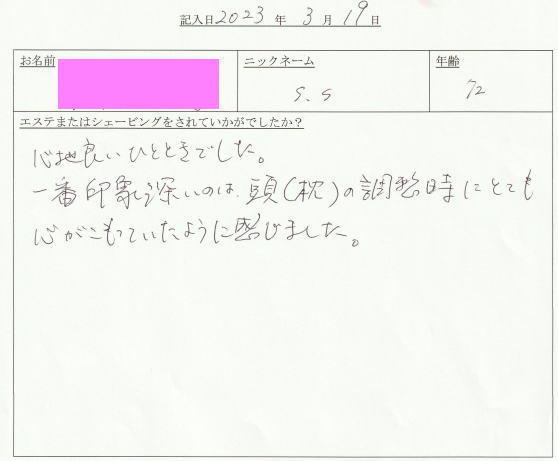 記入日2023年 3月 19日
お名前 ニックネーム 年齢
S.S 72
エステまたはシェービングをされていかがでしたか?
心地良いひとときでした。
一番印象深いのは、頭(枕)の調整時にとても
心がこもっていたように感じました。